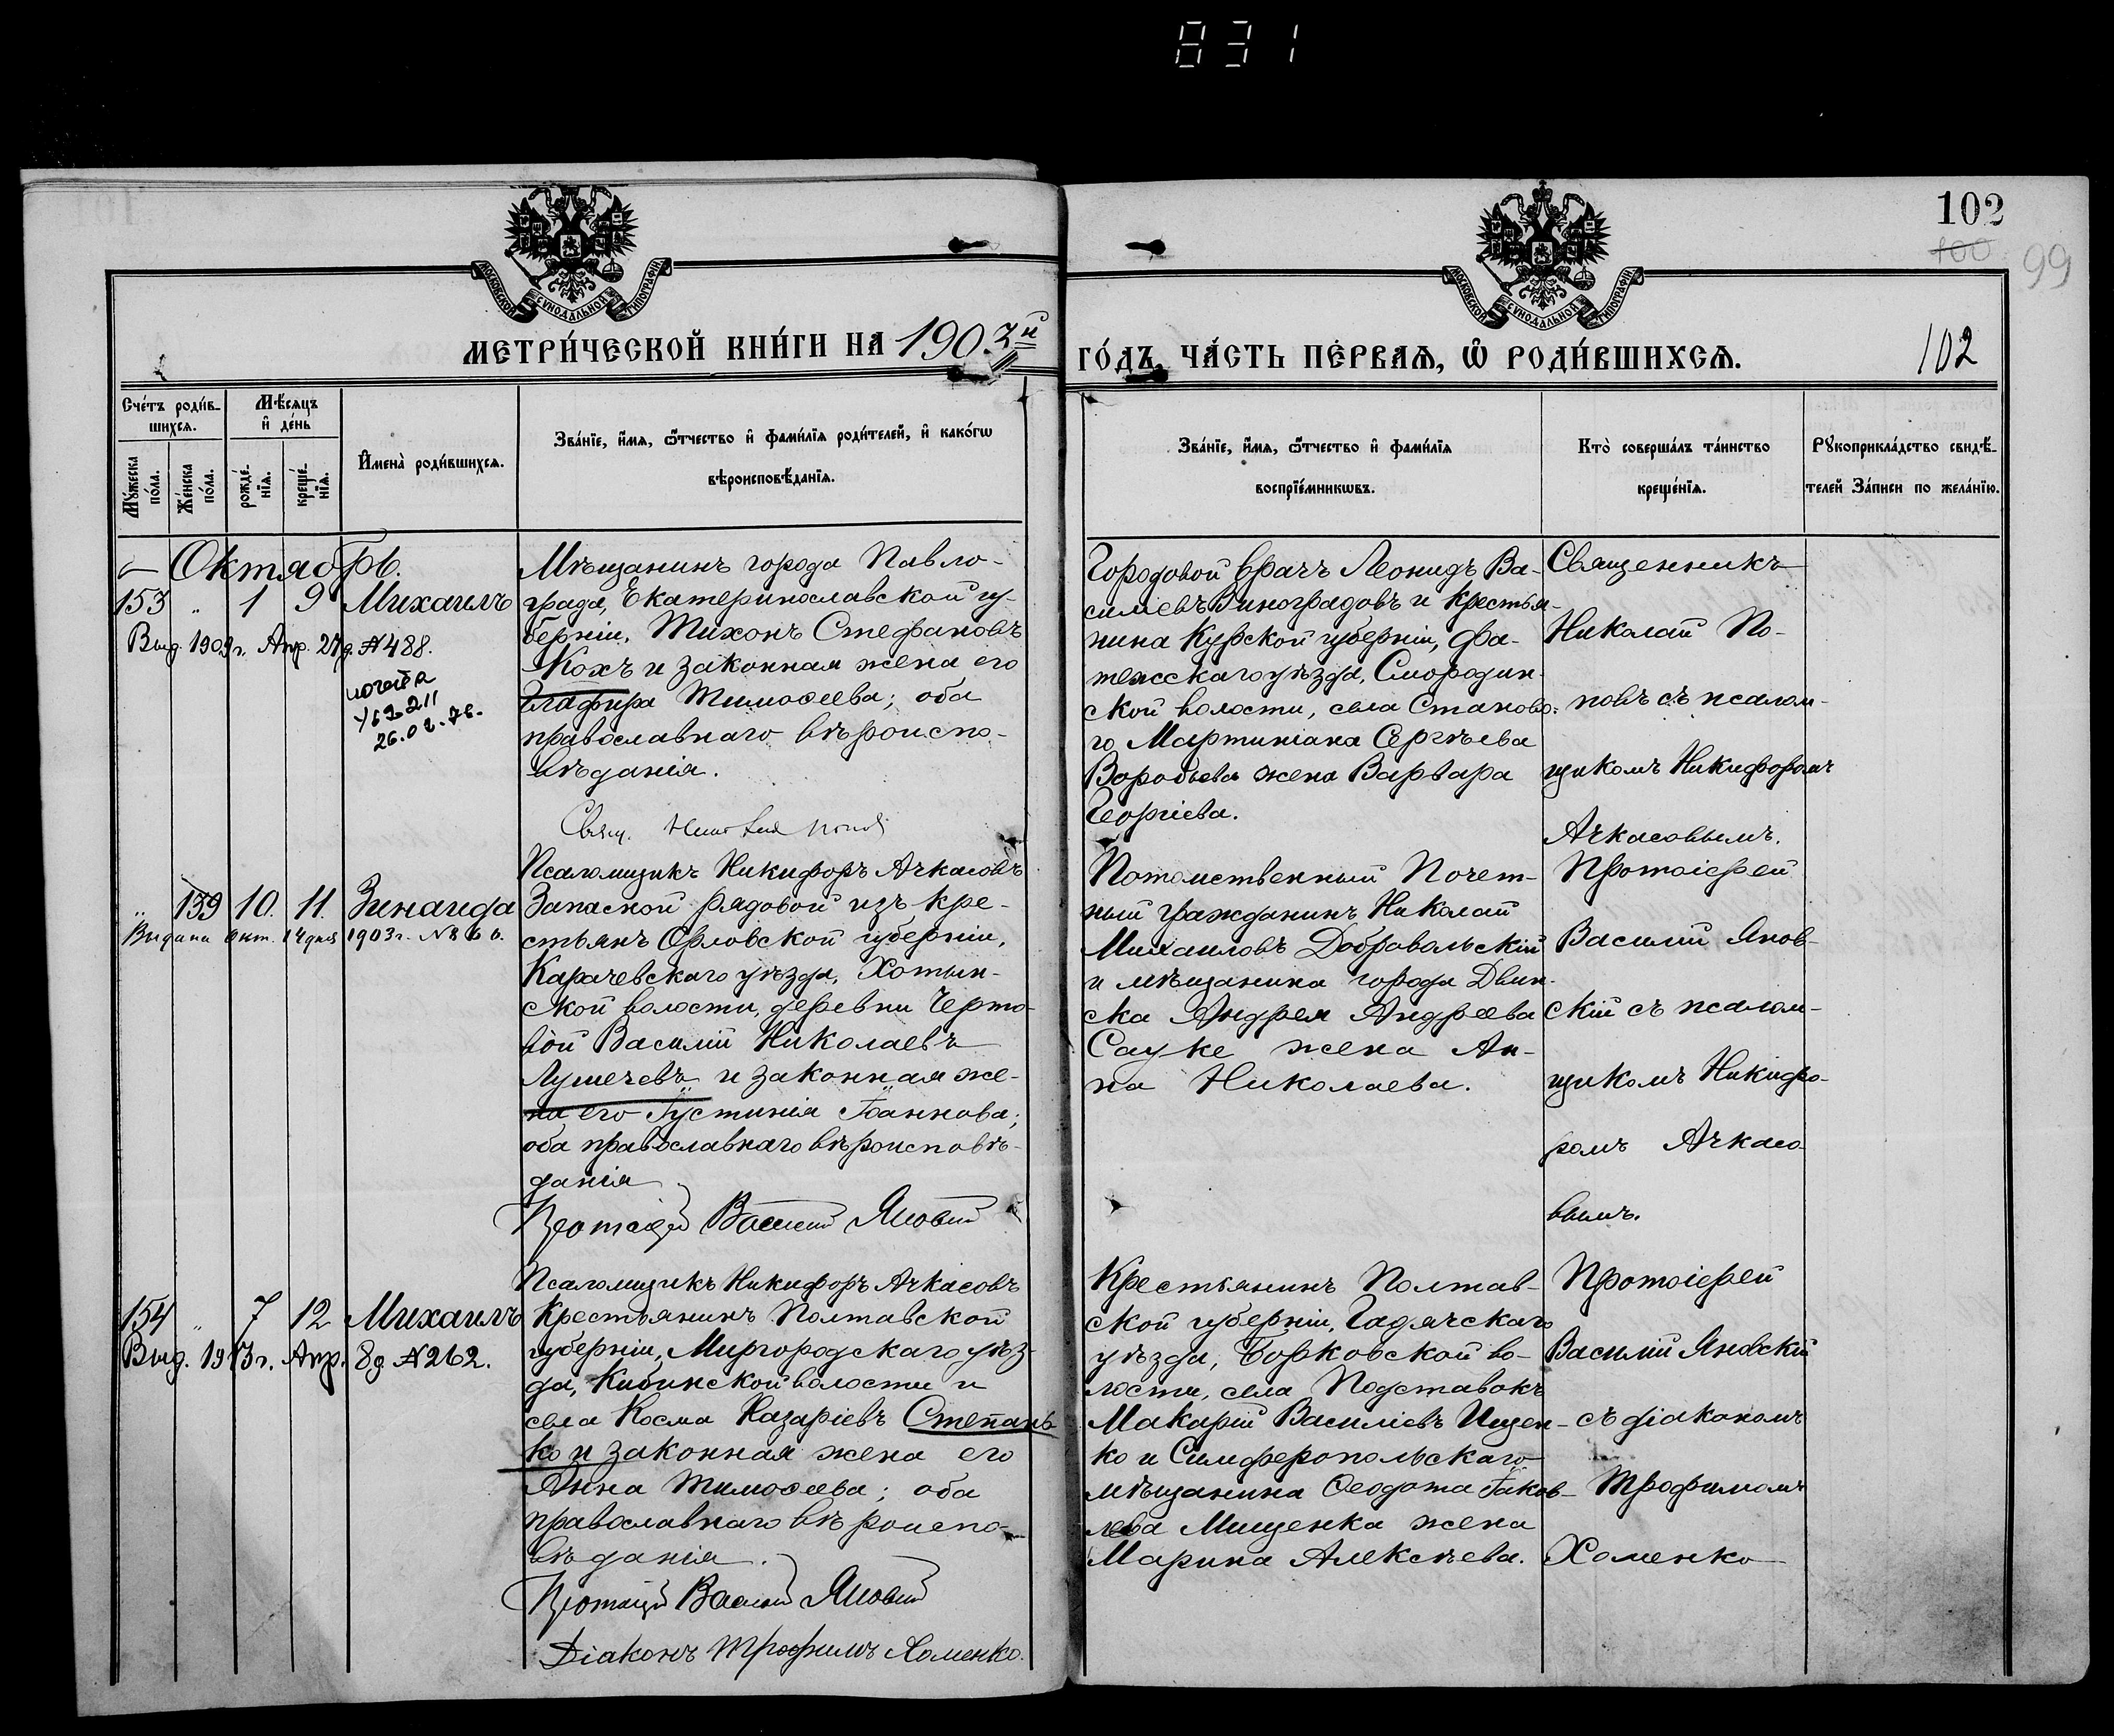 831
102
100
99
МОСКОВСКОЙ СѴНОДАЛЬНОЙ ТИПОГРАФІИ
МОСКОВСКОЙ СѴНОДАЛЬНОЙ ТИПОГРАФІИ
МЕТРИ́ЧЕСКОЙ КНИ́ГИ НА 1903й
ГО́ДЪ, ЧА́СТЬ ПЕ́РВАѦ, Ѡ҆ РОДИ́ВШИХСѦ.
102
Сче́тъ роди́в-
шихсѧ.
Мѣ́сѧцъ
и҆ де́нь
Мꙋ́жеска
по́ла.
Же́нска
по́ла.
рожде́-
нїѧ.
креще́-
нїѧ.
И҆мена̀ роди́вшихсѧ.
Зва́нїе, и҆́мѧ, ѻ҆́тчество и҆ фами́лїѧ роди́телей, и҆ како́гѡ
вѣроисповѣ́данїѧ.
Зва́нїе, и҆́мѧ, ѻ҆́тчество и҆ фами́лїѧ
воспрїе́мникѡвъ.
Кто̀ соверша́лъ та́инство
креще́нїѧ.
Рꙋкоприкла́дство свидѣ́-
телей За́писи по жела́нїю.
Октябрь.
153 " 1 9 Михаилъ
Выд. 1909 г. Апр. 27 д. № 488.
26.02.76.
Мѣщанинъ города Павло-
града, Екатеринославской гу-
берніи, Тихонъ Стефановъ
Кохъ и законная жена его
Глафира Тимоѳеева; оба
православнаго вѣроиспо-
вѣданія.
Свящ. Николай Поповъ
Псаломщикъ Никифоръ Ачкасовъ
Городовой врачъ Леонидъ Ва-
сильевъ Виноградовъ и крестья-
нина Курской губерніи, Фа-
тежскаго уѣзда, Смородин-
ской волости, села Станово-
го Мартиніана Сергѣева
Воробьева жена Варвара
Георгіева.
Священникъ
Николай По-
повъ съ псалом-
щикомъ Никифоромъ
Ачкасовымъ.
" 139 10. 11. Зинаида
Выдана Окт. 14 дня 1903 г. № 866.
Запасной рядовой изъ кре-
стьянъ Орловской губерніи,
Карачевскаго уѣзда, Хотын-
ской волости, деревни Черто-
вой Василій Николаевъ
Лушечевъ и законная же-
на его Іустинія Іоаннова;
оба православнаго вѣроисповѣ-
данія
Протоіерей Василій Яновскій
Псаломщикъ Никифоръ Ачкасовъ
Потомственный Почет-
ный гражданинъ Николай
Михаиловъ Добровольскій
и мѣщанина города Двин-
ска Андрея Андреева
Сауке жена Ан-
на Николаева.
Протоіерей
Василій Янов-
скій съ псалом-
щикомъ Никифо-
ромъ Ачкасо-
вымъ.
154 " 7 12 Михаилъ
Выд. 1913 г. Апр. 8 д № 262.
Крестьянинъ Полтавской
губерніи, Миргородскаго уѣз-
да, Кибинской волости и
села Косма Назаріевъ Степань-
ко и законная жена его
Анна Тимоѳеева; оба
православнаго вѣроиспо-
вѣданія.
Протоіерей Василій Яновскій
Діаконъ Трофимъ Хоменко.
Крестьянинъ Полтав-
ской губерніи, Гадячскаго
уѣзда, Борковской во-
лости, села Подставокъ
Макарій Василіевъ Ищен-
ко и Симферопольскаго
мѣщанина Ѳеодота Іаков-
лева Мищенка жена
Марина Алексѣева.
Протоіерей
Василій Яновскій
съ діакономъ
Трофимомъ
Хоменко